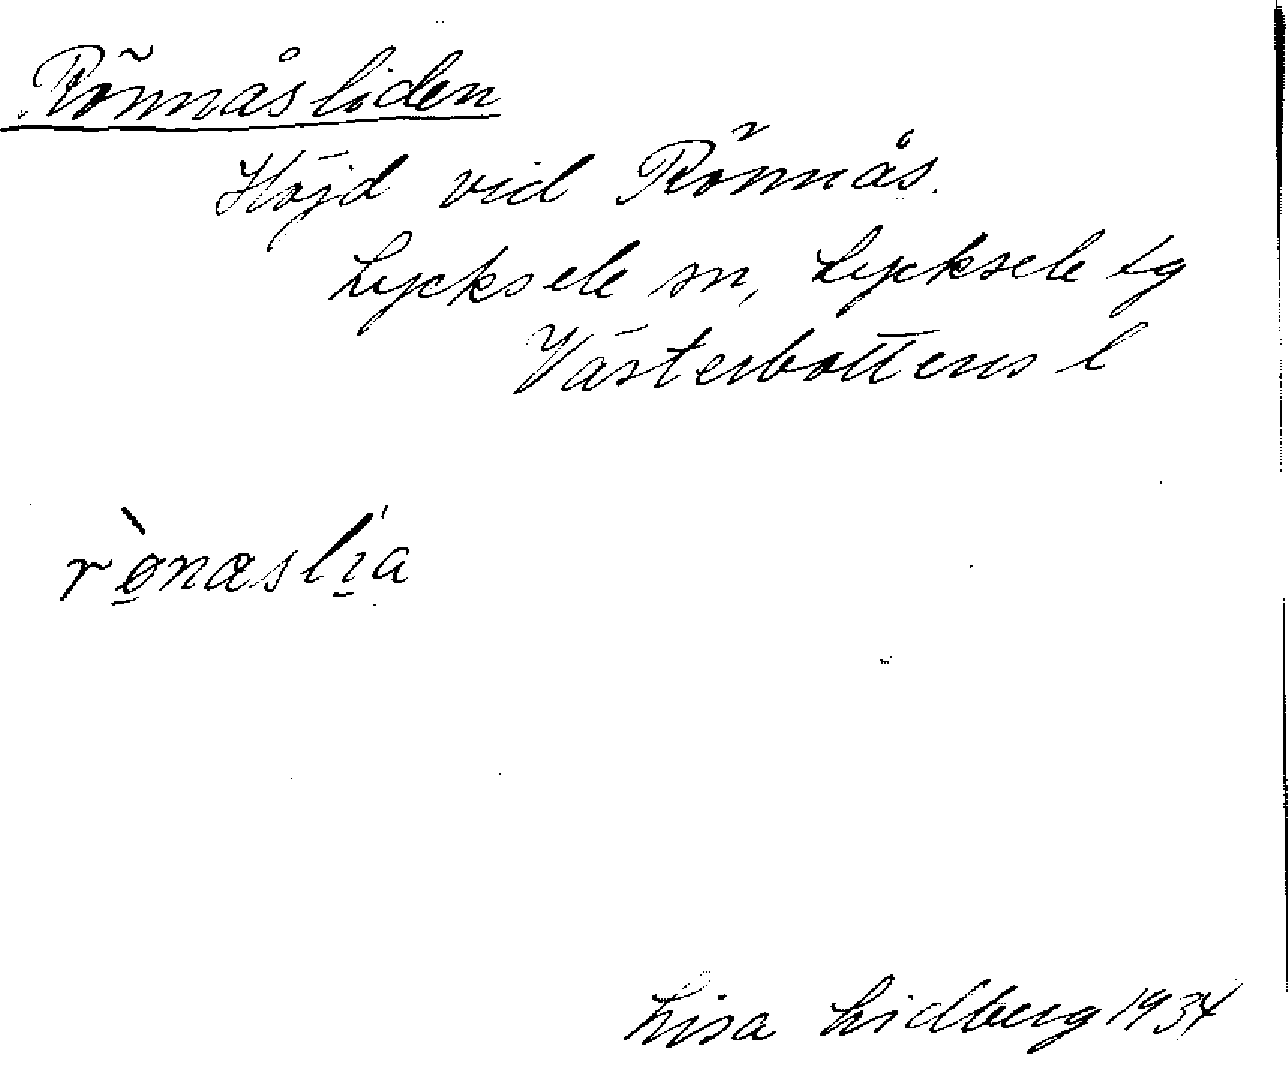 Rönnåsliden
Höjd vid Rönnås.
Lycksele sn, Lycksele tg
Västerbottens l
rø̱̀næslí̱a
Lisa Lidberg 1934